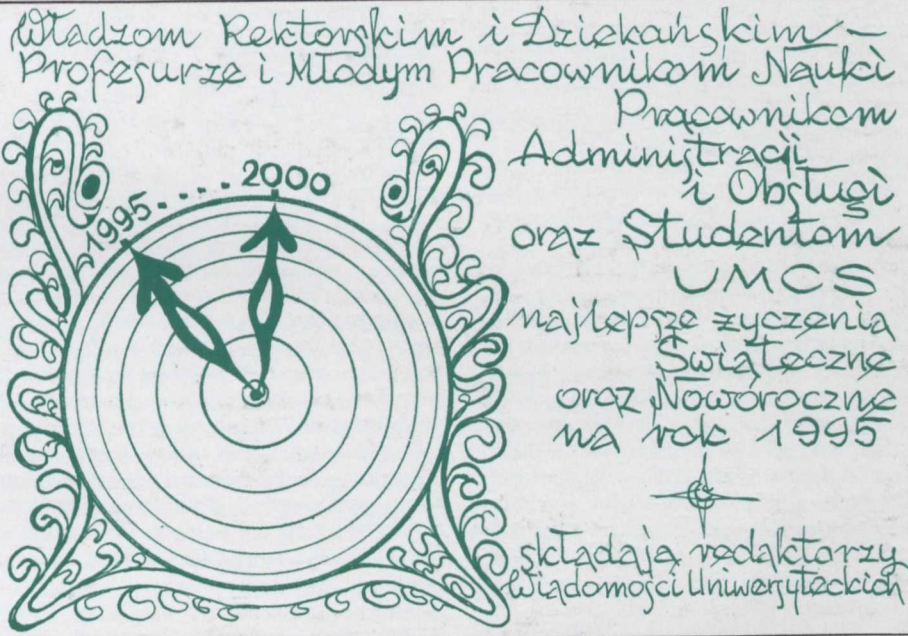 Władzom Rektorskim i Dziekańskim –
Profesurze i Młodym Pracownikom Nauki
Pracownikom
Administracji
i Obsługi
oraz Studentom
UMCS
najlepsze życzenia
Świąteczne
oraz Noworoczne
na rok 1995
składają redaktorzy
Wiadomości Uniwersyteckich
1995 . . . . . 2000